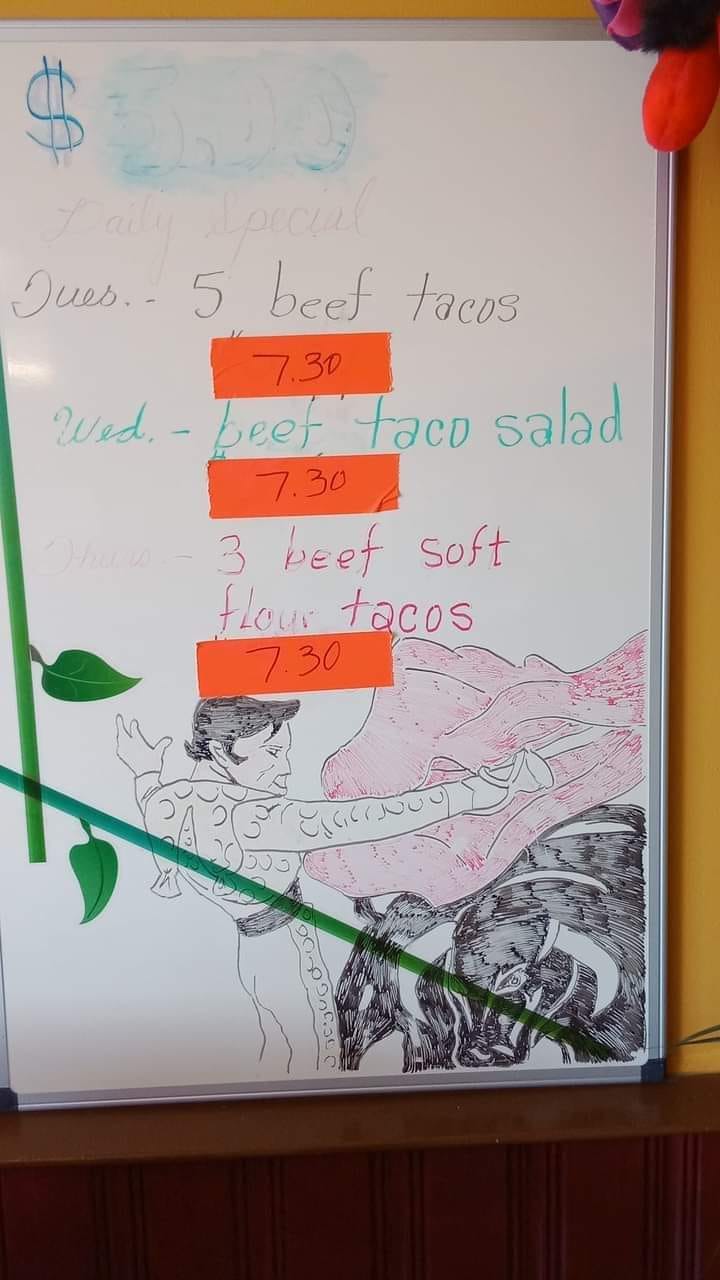 $
Daily Special
Tues. - 5 beef tacos
7.30
Wed. - beef taco salad
7.30
Thurs - 3 beef soft
flour tacos
7.30